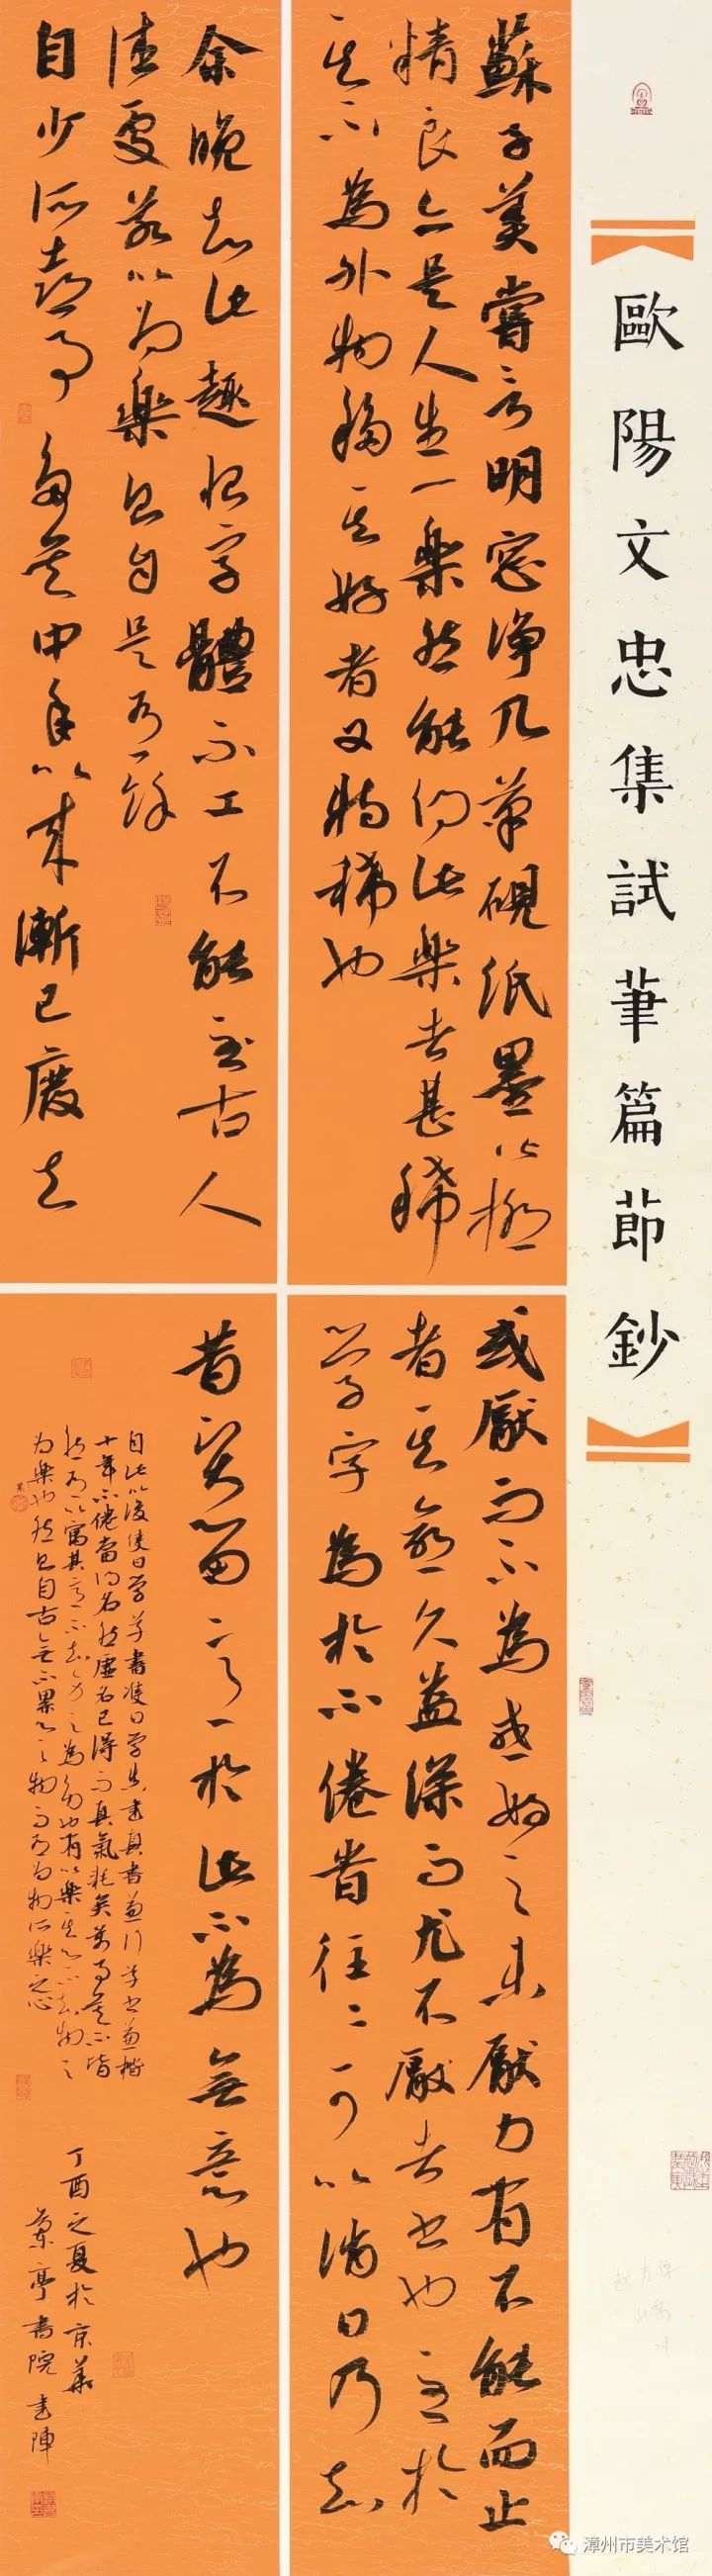 歐陽文忠集試筆篇節鈔
蘇子美嘗言明窓淨几筆硯紙墨皆極
精良亦是人生一樂然能得此樂者甚稀
其不為外物移其好者又特稀也
余晚知此趣恨字體不工不能至古人
佳處若以為樂則自是有餘
自少所喜事多矣中年以來漸已廢去
或厭而不為或好之未厭力有不能而止
者其愈久益深而尤不厭者書也至於
學字為於不倦時往往可以消日乃知
昔賢留意於此不為無意也
自此以後隻日學草書雙日學真書真書兼行草書兼楷
十年不倦當得名然虛名已得而真氣耗矣萬事莫不皆
然有以寓其意不知身之為勞也有以樂其心不知物之
為樂也然則自古無不累心之物而有為物所樂之心
累
丁酉之夏於京華
蘭亭書院
漳州市美术馆